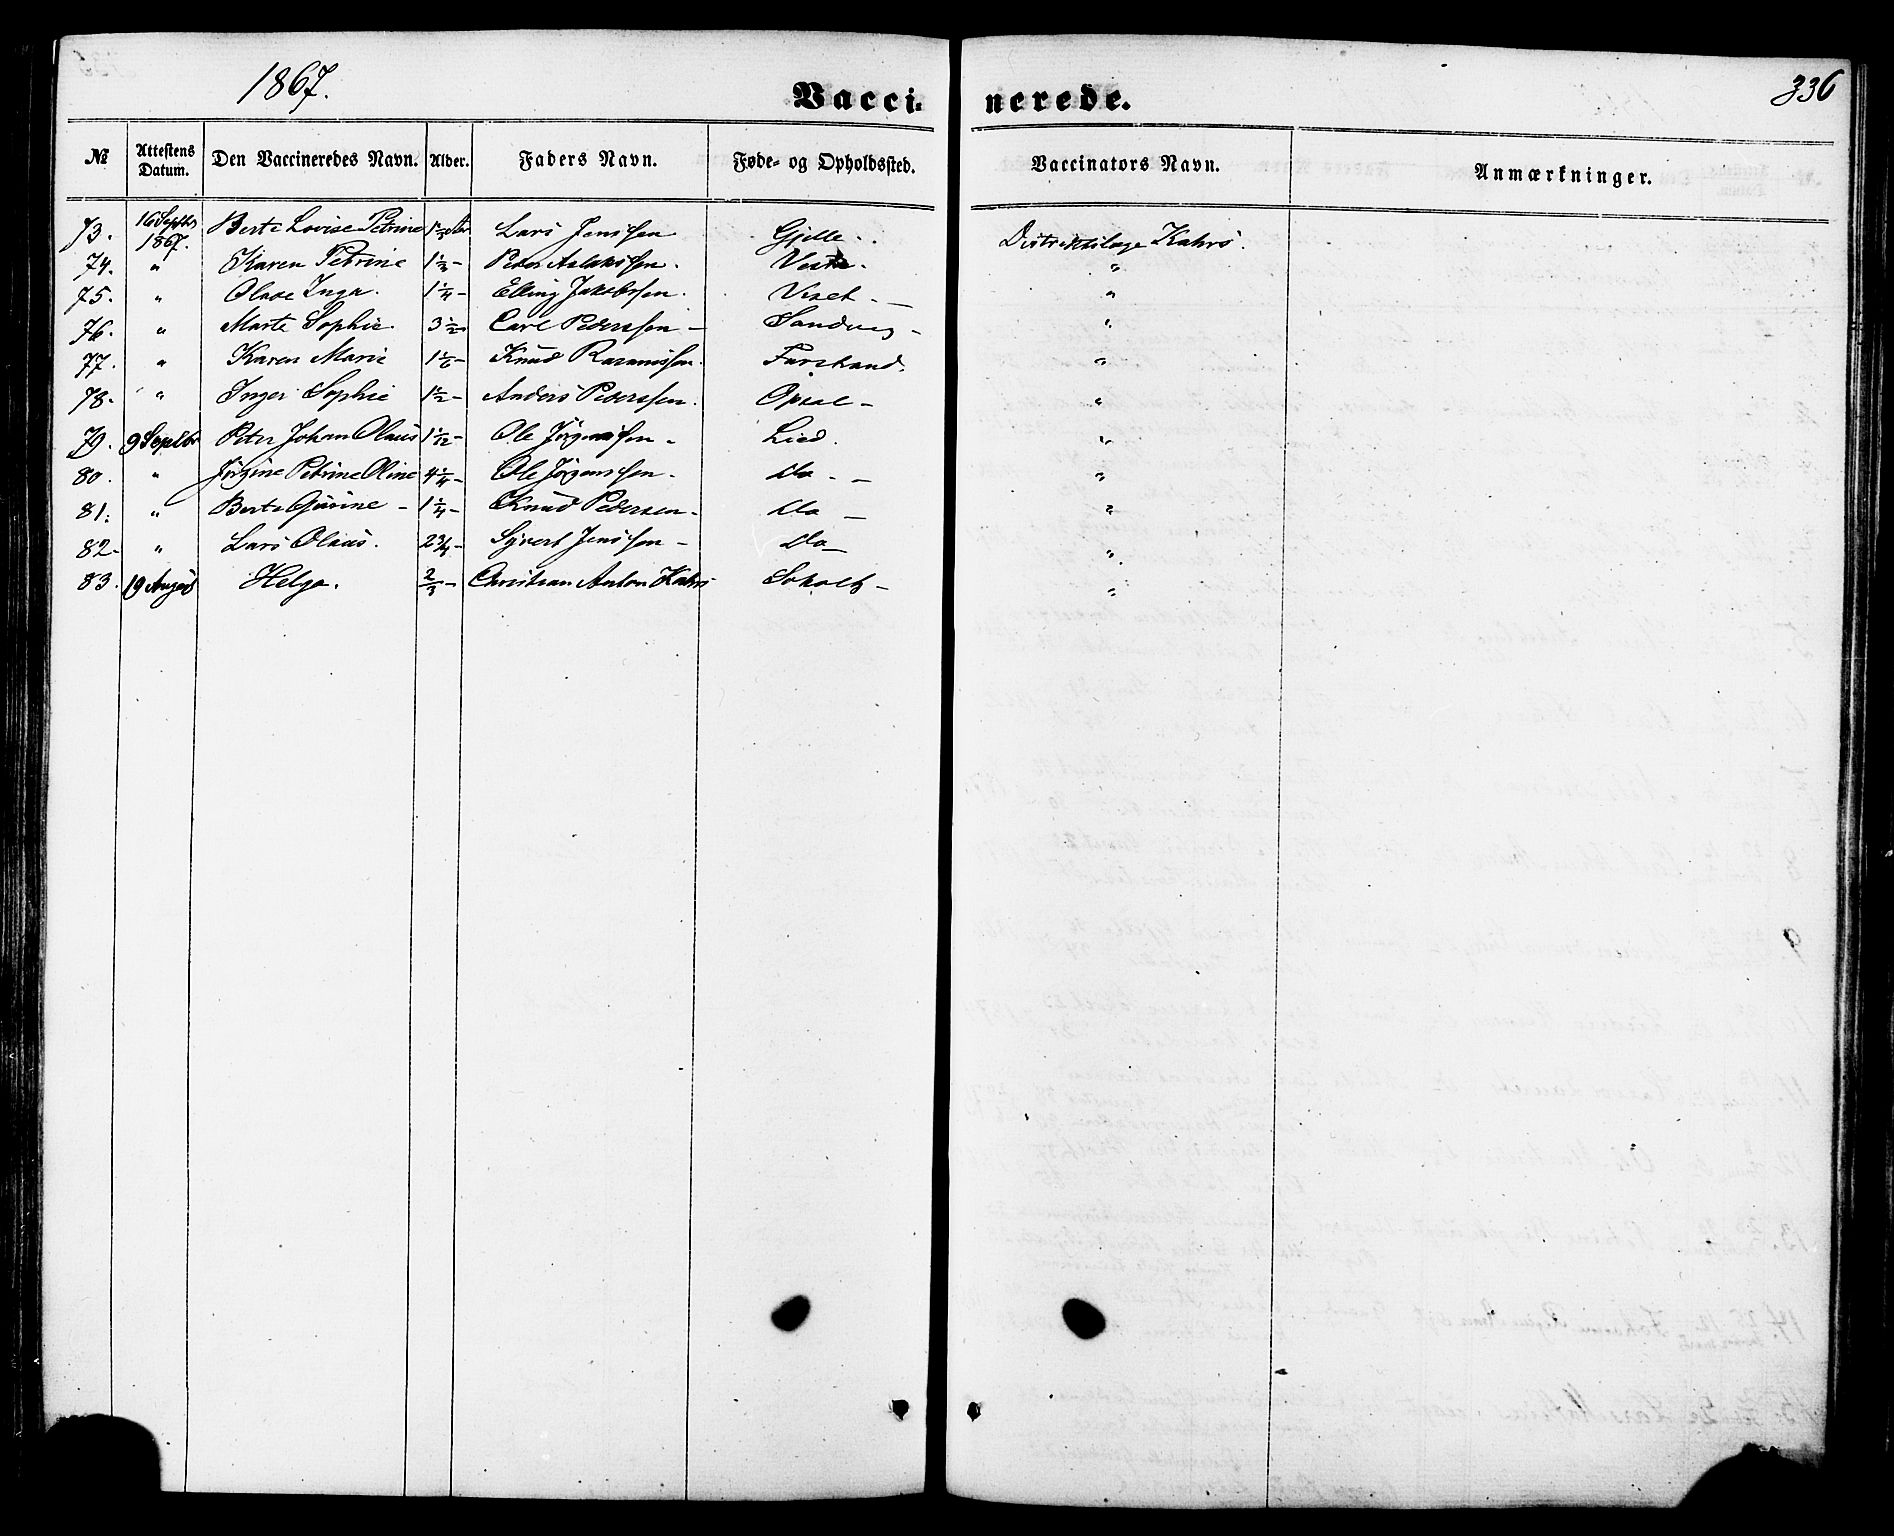 1867.
Vacci- nerede.
336
№ Attestens Datum. Den Vaccineredes Navn. Alder. Faders Navn. Føde- og Opholdssted. Vaccinators Navn. Anmærkninger.
73. 16 Septbr 1867. Berte Lovise Petrine Lars Jenssen Gjelle Distriktslæge Kahrs.
74. " Karen Petrine Peder Aslakssen. "
75. " Olave Inga. 1 1/4 - Elling Jakobssen. Viset - "
76. " Marte Sophie. 3 1/2 Carl Pederssen - Sandvig - "
77. " Karen Marie 1 1/6 - Knud Rasmussen. Farstand. "
78. " Inger Sophie 1 1/2 - Anders Pederssen. Opsal - "
79. 9 Septbr Peter Johan Olaus 1 1/12 - Ole Jørgenssen - Lied. "
80. " Jørgine Petrine Oline 4 1/4 - Ole Jørgenssen - do - - "
81. " Berte Gurine - 1 1/4 - Knud Pedersen - do - "
82 - " Lars Olaus. 2 3/4 - Syvert Jenssen - do - "
83. 19 August Helga. 2/3 - Christian Anton Kahrs Soholt - "